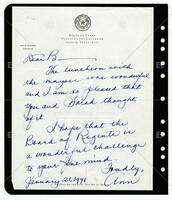 STATE OF TEXAS
OFFICE OF THE GOVERNOR
AUSTIN, TEXAS 78711
Dear B—
The luncheon with
the mayors was wonderful
and I am so pleased that
you and Sarah thought
of it.
I hope that the
Board of Regents is
a wonderful challenge
to your fine mind.
Fondly,
January 21, 1991
Ann